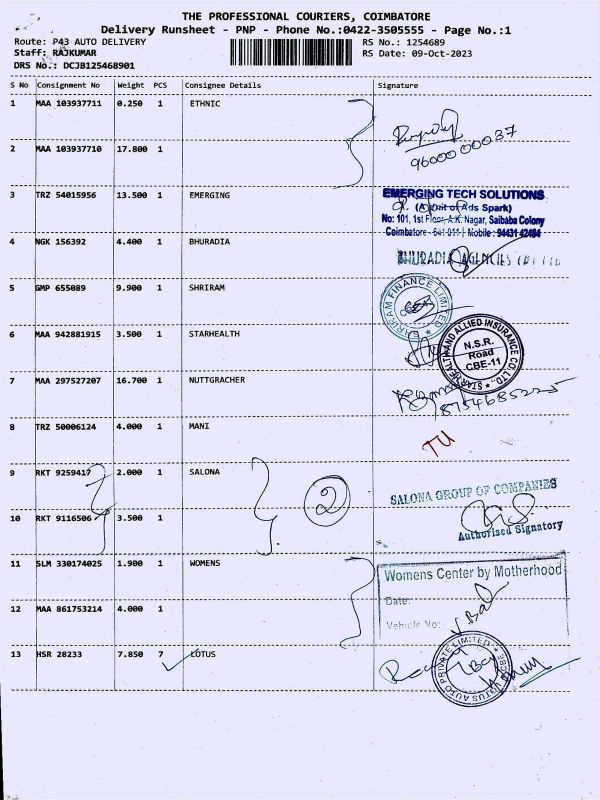 THE PROFESSIONAL COURIERS, COIMBATORE
Delivery Runsheet - PNP - Phone No.:0422-3505555 - Page No.:1
Route: P43 AUTO DELIVERY RS No.: 1254689
Staff: RAJKUMAR RS Date: 09-Oct-2023
DRS No.: DCJB125468901
S No Consignment No Weight PCS Consignee Details Signature
1 MAA 103937711 0.250 1 ETHNIC
9600000037
2 MAA 103937710 17.800 1
3 TRZ 54015956 13.500 1 EMERGING
EMERGING TECH SOLUTIONS
(A Unit of Ads Spark)
No: 101, 1st Floor, A.K. Nagar, Saibaba Colony
Coimbatore - 641 011 | Mobile : 94431 42484
4 NGK 156392 4.400 1 BHURADIA
BHURADIA AGENCIES
5 GMP 655089 9.900 1 SHRIRAM
FINANCE LIMITED
6 MAA 942881915 3.500 1 STARHEALTH
STAR HEALTH AND ALLIED INSURANCE CO. LTD.
N.S.R.
Road
CBE-11
7 MAA 297527207 16.700 1 NUTTGRACHER
8754685225
8 TRZ 50006124 4.000 1 MANI
TU
9 RKT 9259417 2.000 1 SALONA
2
SALONA GROUP OF COMPANIES
10 RKT 9116506 3.500 1
Authorised Signatory
11 SLM 330174025 1.900 1 WOMENS
Womens Center by Motherhood
Date:
Vehicle No:
12 MAA 861753214 4.000 1
13 HSR 28233 7.850 7 LOTUS
LOTUS AUTO PRIVATE LIMITED